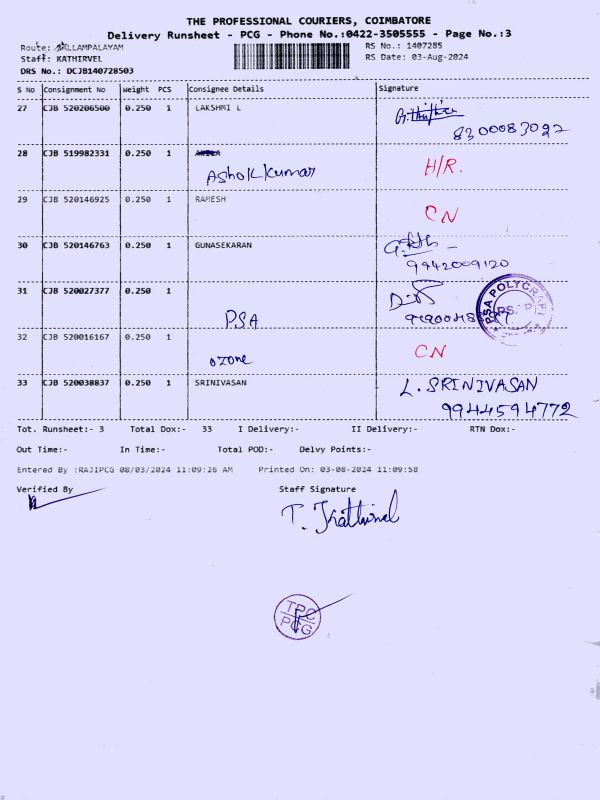 THE PROFESSIONAL COURIERS, COIMBATORE
Delivery Runsheet - PCG - Phone No.:0422-3505555 - Page No.:3
Route: NALLAMPALAYAM RS No.: 1407285
Staff: KATHIRVEL RS Date: 03-Aug-2024
DRS No.: DCJB140728503
S No Consignment No Weight PCS Consignee Details Signature
27 CJB 520206500 0.250 1 LAKSHMI L
8300083092
28 CJB 519982331 0.250 1
Ashok kumar H/R.
29 CJB 520146925 0.250 1 RAMESH
CN
30 CJB 520146763 0.250 1 GUNASEKARAN
9942009120
31 CJB 520027377 0.250 1
PSA
PSA POLYCRAFT
32 CJB 520016167 0.250 1 CN
ozone
33 CJB 520038837 0.250 1 SRINIVASAN L. SRINIVASAN
9944594772
Tot. Runsheet:- 3 Total Dox:- 33 I Delivery:- II Delivery:- RTN Dox:-
Out Time:- In Time:- Total POD:- Delvy Points:-
Entered By :RAJIPCG 08/03/2024 11:09:26 AM Printed On: 03-08-2024 11:09:58
Verified By Staff Signature
TPC
PCG